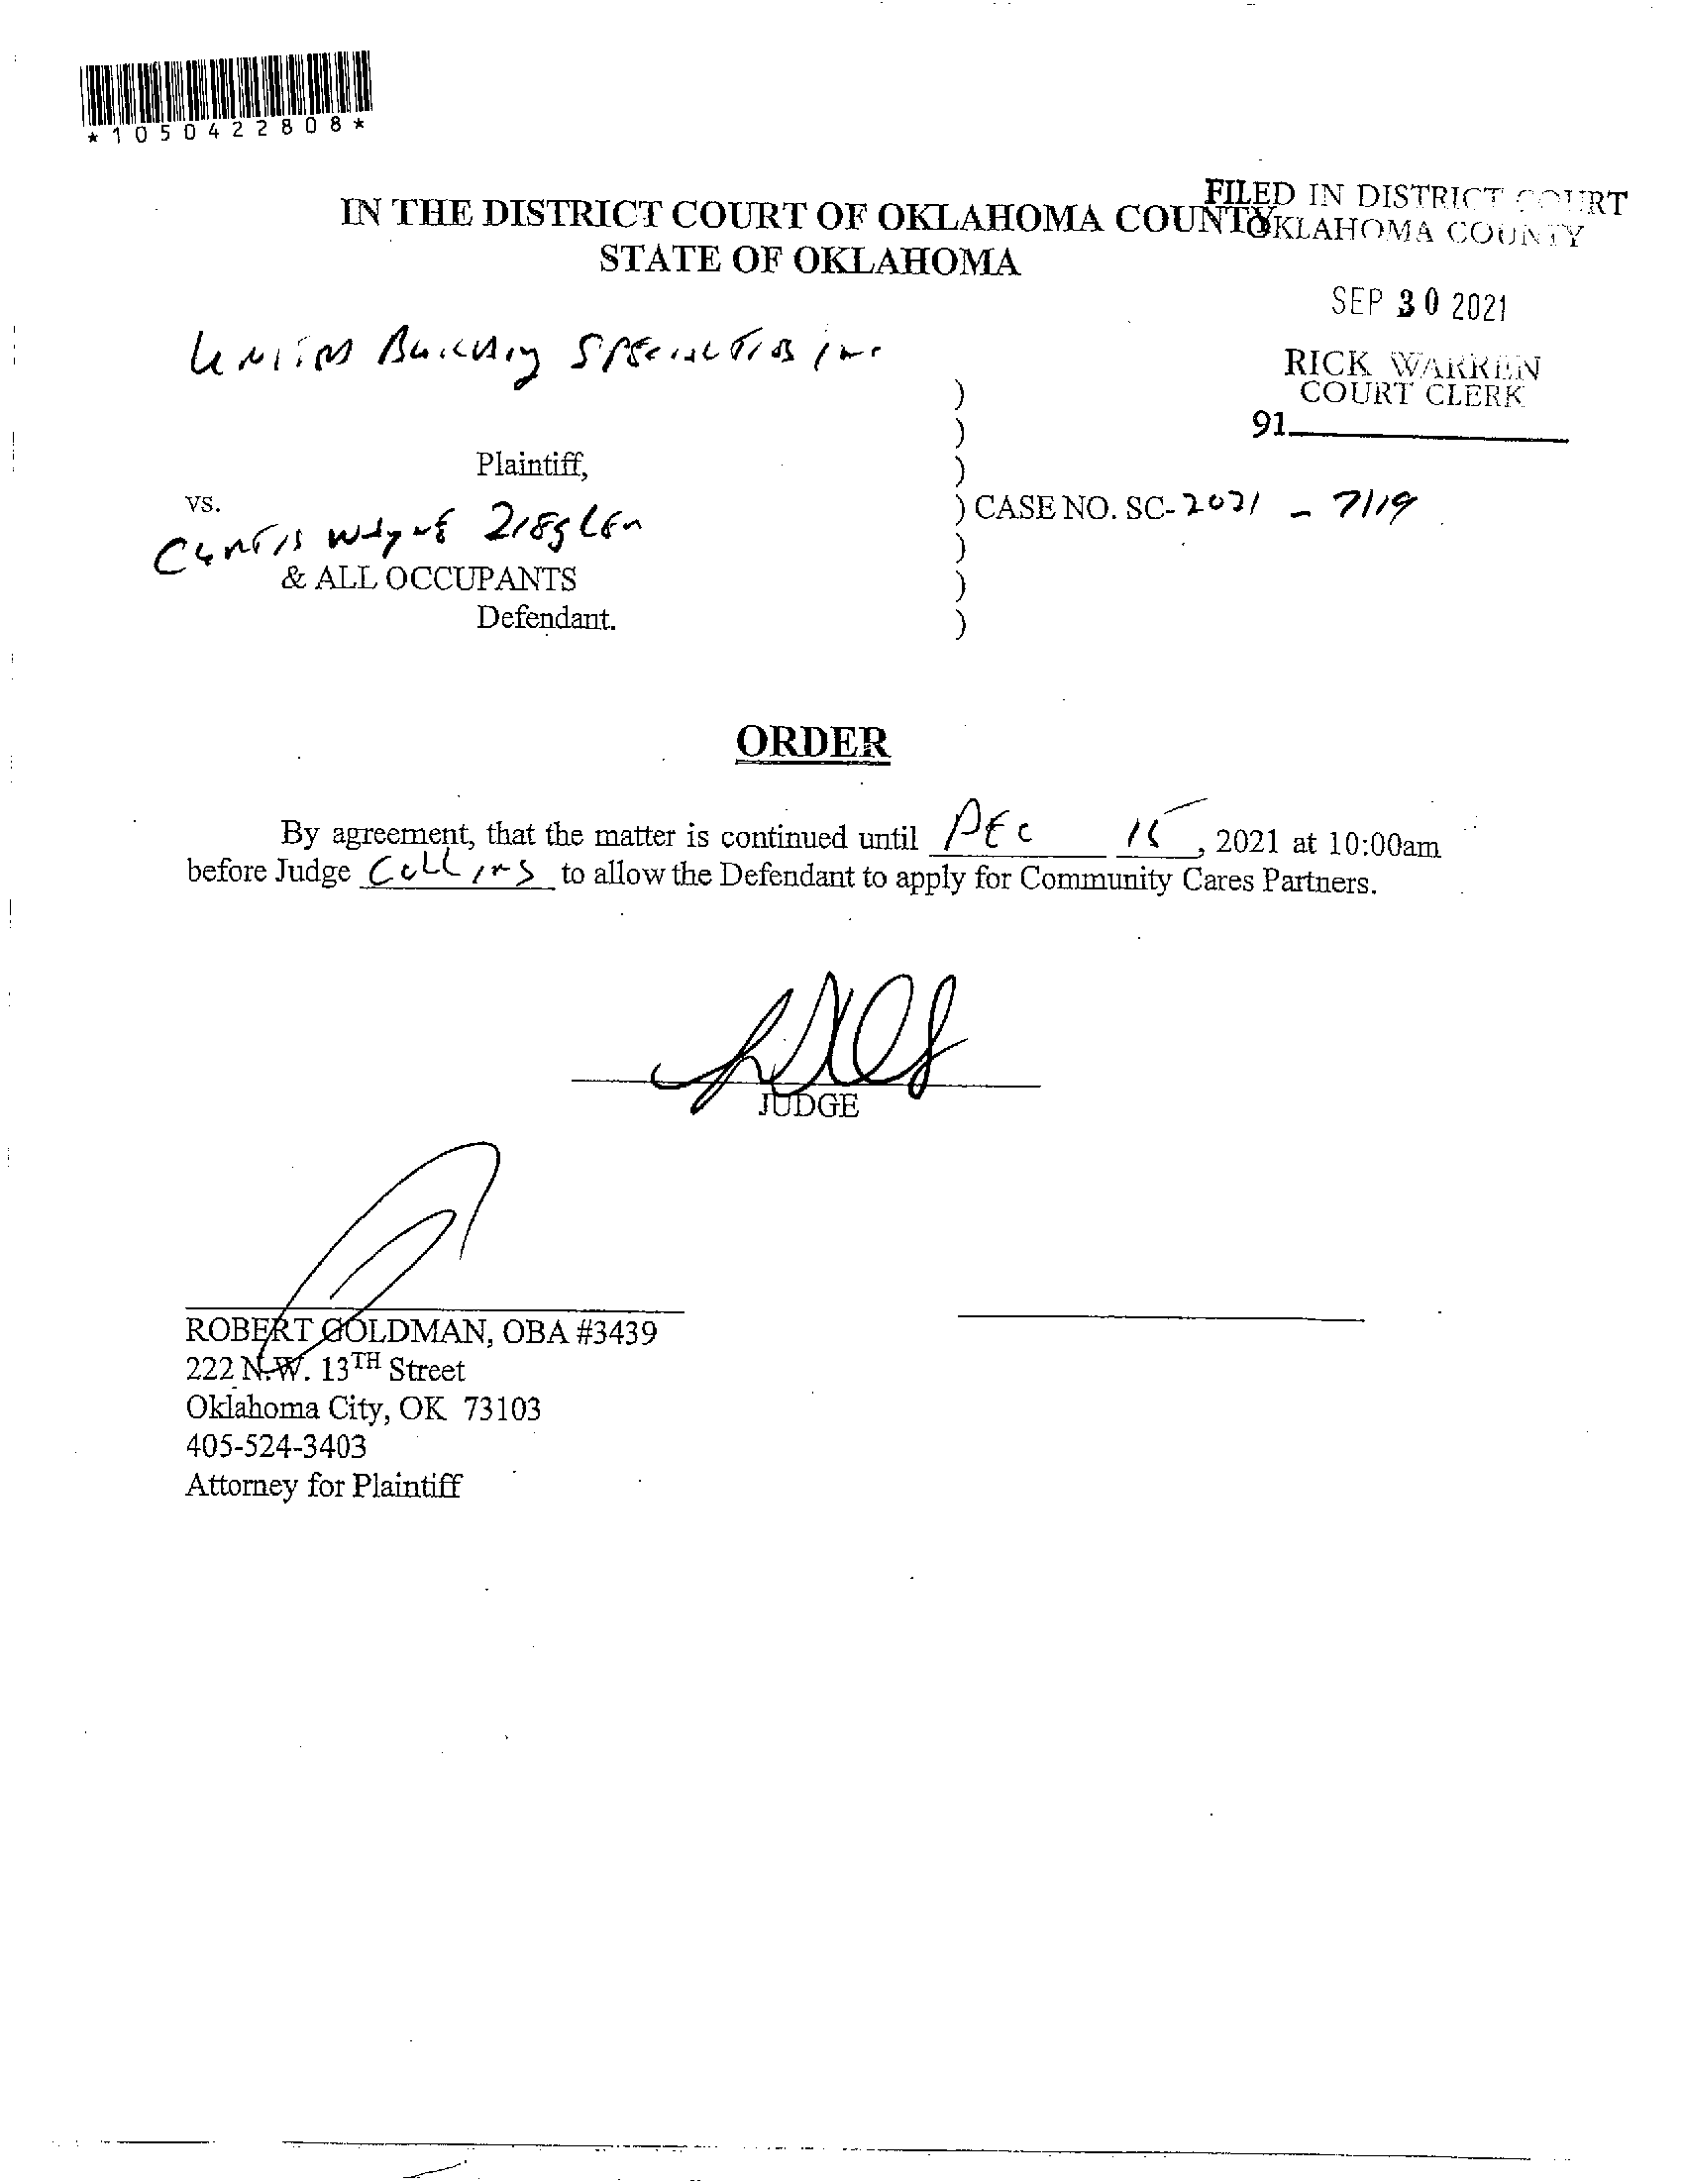 *1050422808*
FILED IN DISTRICT COURT
OKLAHOMA COUNTY
IN THE DISTRICT COURT OF OKLAHOMA COUNTY
STATE OF OKLAHOMA
SEP 30 2021
RICK WARREN
COURT CLERK
91
Building Specialties Inc
)
)
Plaintiff, )
vs. ) CASE NO. SC-2021 - 7119
Curtis Wayne Ziegler )
& ALL OCCUPANTS )
Defendant. )
ORDER
By agreement, that the matter is continued until DEC 15, 2021 at 10:00am
before Judge Collins to allow the Defendant to apply for Community Cares Partners.
JUDGE
ROBERT GOLDMAN, OBA #3439
222 N.W. 13TH Street
Oklahoma City, OK 73103
405-524-3403
Attorney for Plaintiff